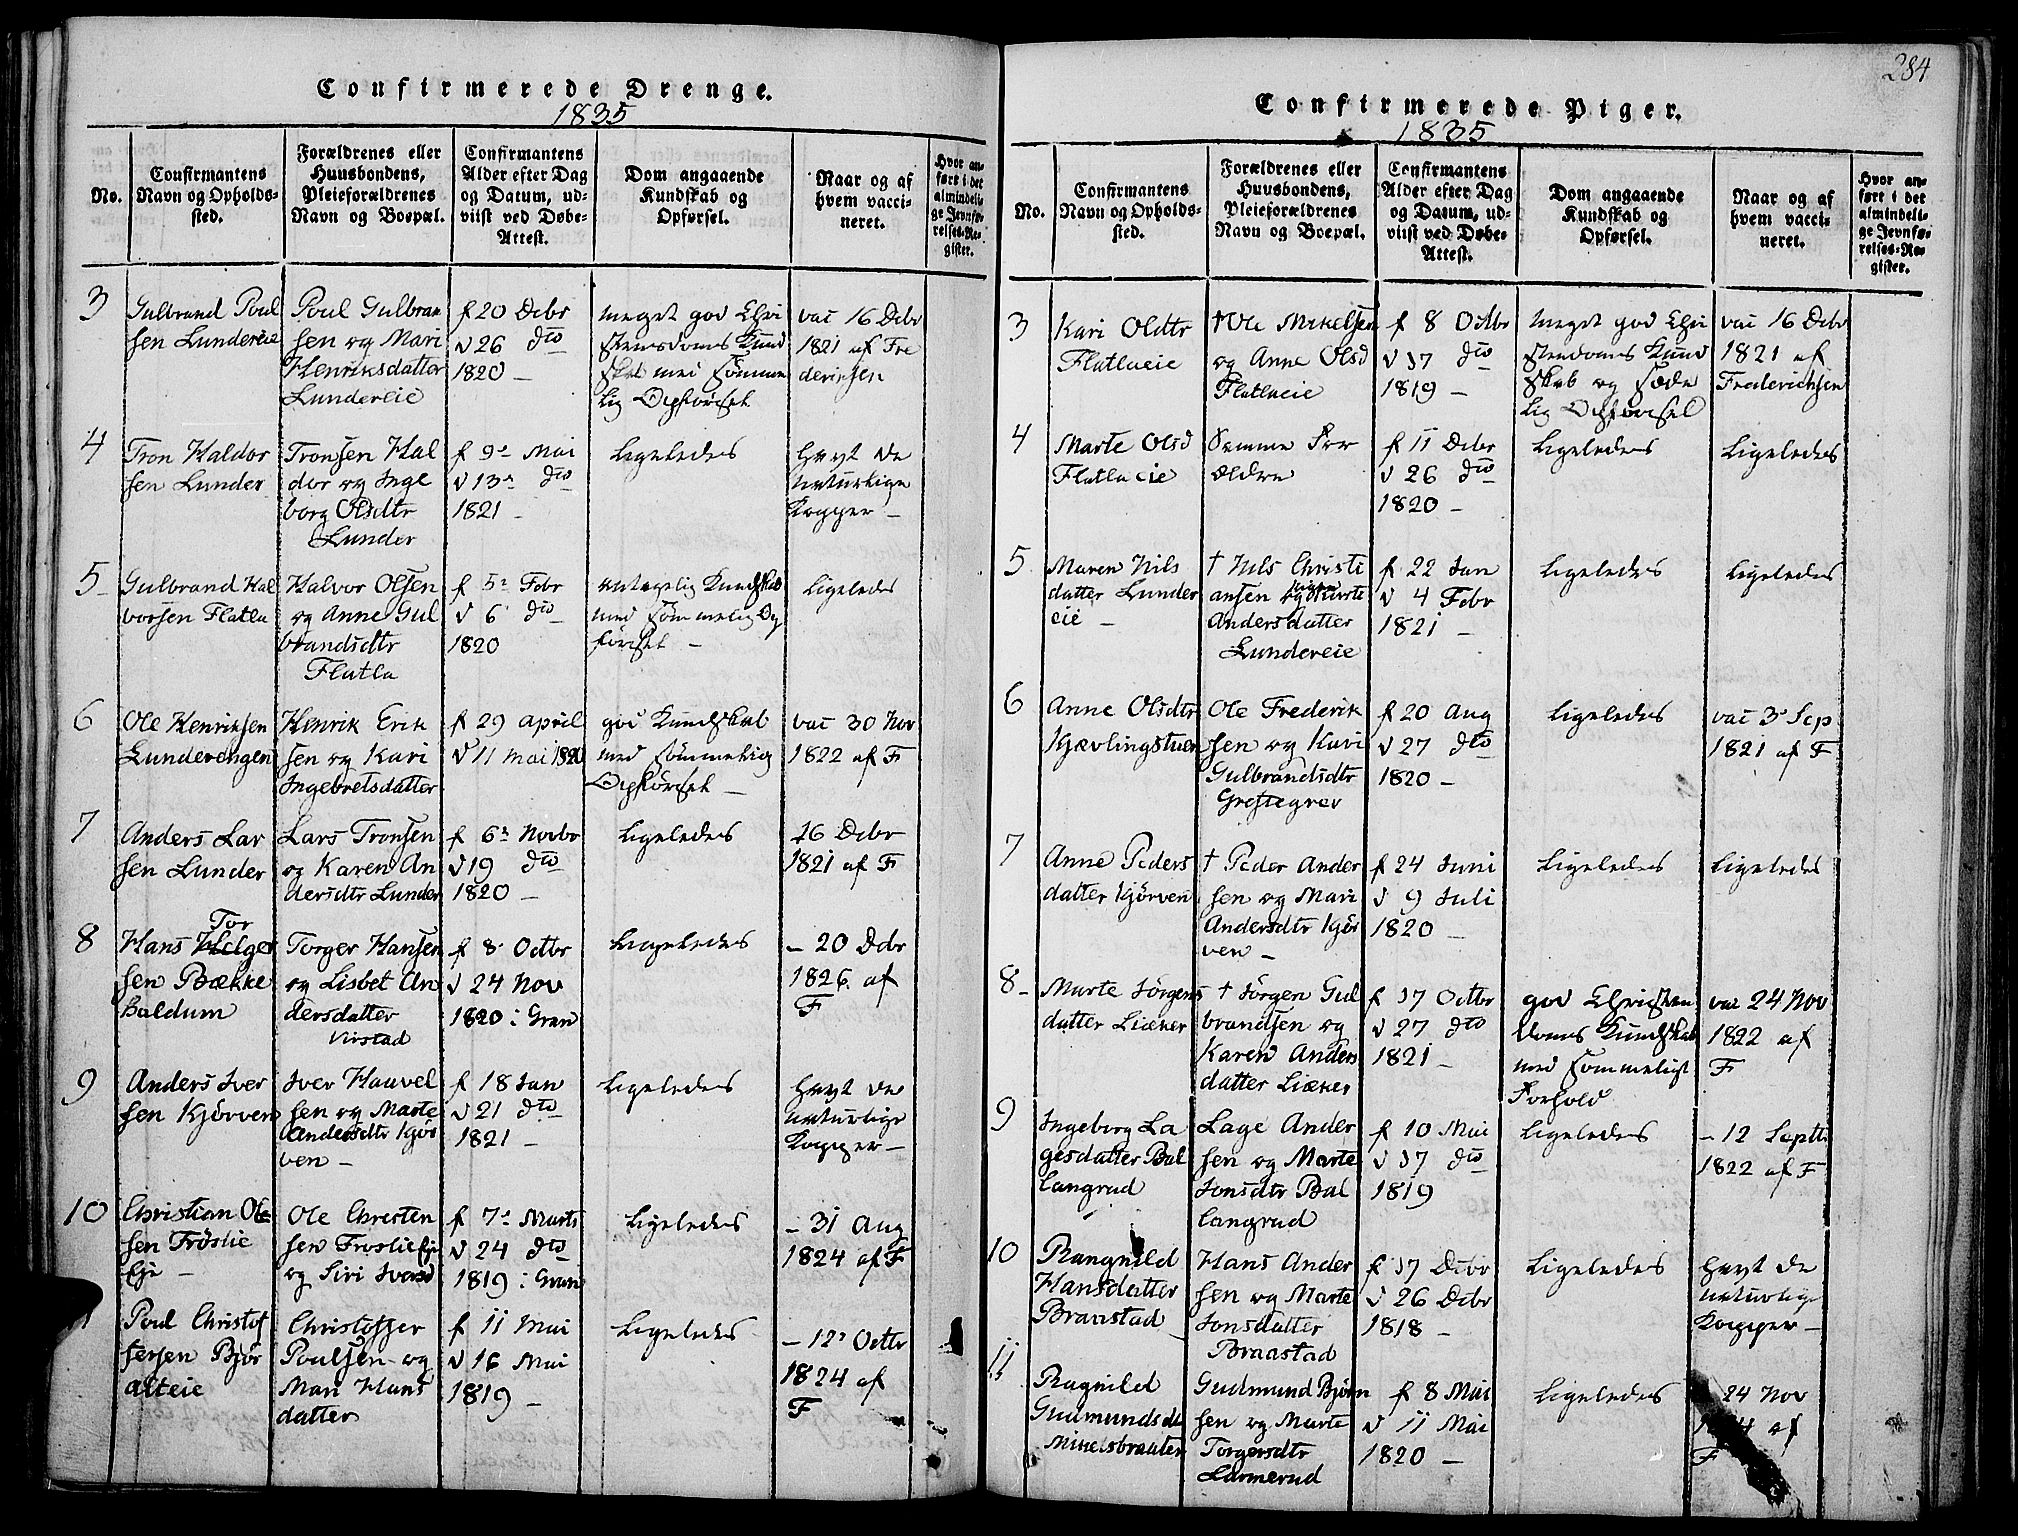 Confirmerede Drenge.
1835
No.
Confirmantens
Navn og Opholds-
sted.
Forældrenes eller
Huusbondens,
Pleieforældrenes
Navn og Boepæl.
Confirmantens
Alder efter Dag
og Datum, ud-
viist ved Døbe-
Attest.
Dom angaaende
Kundskab og
Opførsel.
Naar og af
hvem vacci-
neret.
Hvor an-
ført i det
almindeli-
ge Jevnfø-
relses-Re-
gister.
3
Gulbrand Poul
sen Lundereie
Poul Gulbran
sen og Mari
Henriksdatter
Lundereie
f 20 Debr
d 26 dto
1820 –
meget god Chri
stensdoms Kund
skab med sømme
lig Opførsel
vac 16 Debr
1821 af Fre
derichsen
4
Tron Haldor
sen Lunder
Tronsen Hal
dor og Inge
borg Olsdtr
Lunder
f 9de Mai
d 13de dto
1821 –
Ligeledes
havt de
naturlige
Kopper –
5
Gulbrand Hal
vorsen Flatla
Halvor Olsen
og Anne Gul
brandsdtr
Flatla
f 5te Febr
d 6 dto
1820
antagelig Kundskab
med sømmelig Op
førsel –
Ligeledes
6
Ole Henriksen
Lunderengen
Henrik Erik
sen og Kari
Ingebretsdatter
f 29 april
d 11 mai 1820
god Kundskab
med sømmelig
Opførsel –
vac 30 Nov
1822 af F
7
Anders Lar
sen Lunder
Lars Tronsen
og Karen An
dersdtr Lunder
f 6te Novbr
d 19 dto
1820 –
Ligeledes
16 Debr
1821 af F
8
Tor
Hans Helger
sen Bække
haldum
Torger Hansen
og Lisbet An
dersdatter
Virstad
f 8 Octbr
d 24 Nov
1820 : Gran
Ligeledes
– 20 Debr
1826 af
F
9
Anders Iver
sen Kjörven
Iver Hauvel
sen og Marte
Andersdtr Kjör
ven –
f 18 Jan
d 21 dto
1821 –
Ligeledes
havt de
naturlige
Kopper –
10
Christian Ole
sen Fröslie
Eje –
Ole Christen
sen Froslie eje
og Siri Iversd
f 7de Marts
d 24 dto
1819 : Gran
Ligeledes
– 31 Aug
1824 af F
Poul Christof
fersen Björ
alteie
Christoffer
Poulsen og
Mari Hans
datter
f 11 Mai
d 16 Mai
1819 –
Ligeledes
– 12te Octbr
1824 af
F
284
Confirmerede Piger.
1835
No.
Confirmantens
Navn og Opholds-
sted.
Forældrenes eller
Huusbondens,
Pleieforældrenes
Navn og Boepæl.
Confirmantens
Alder efter Dag
og Datum, ud-
viist ved Døbe-
Attest.
Dom angaaende
Kundskab og
Opførsel.
Naar og af
hvem vacci-
neret.
Hvor an-
ført i det
almindeli-
ge Jevnfø-
relses-Re-
gister.
3
Kari Oldtr
Flatlaeie
† Ole Mikelsen
og Anne Olsd
Flatlaeie
f 8 Octbr
d 17 dto
1819 –
meget god Chri
stendoms Kund
skab og sæde
lig Opførsel
vac 16 Debr
1821 af
Frederichsen
4
Marte Olsd
Flatlaeie
Samme For
ældre
f 11 Debr
d 26 dto
1820 –
Ligeledes
Ligeledes
5
Maren Nils
datter Lunder
eie –
† Nils Christi
ansen og Marte
Andersdatter
Lundereie
f 22 Jan
d 4 Febr
1821 –
Ligeledes
Ligeledes
6
Anne Olsdtr
Kjævlingstuen
Ole Frederik
sen og Kari
Gulbrandsdtr
Greftegrev
f 20 Aug
d 27 dto
1820 –
Ligeledes
vac 3 Sep
1821 af F
7
Anne Peders
datter Kjörven
† Peder Ander
sen og Mari
Andersdtr Kjör
ven –
f 24 Juni
d 9 Juli
1820 –
Ligeledes
Ligeledes
8
Marte Jörgens
datter Liæker
† Jörgen Gul
brandsen og
Karen Anders
datter Liæker
f 17 Octbr
d 27 dto
1821 –
god Christen
doms Kundskab
med sømmeligt
Forhold
vac 24 Nov
1822 af
F
9
Ingeborg La
gesdatter Bal
langrud
Lage Ander
sen og Marte
Jonsdtr Bal
langrud
f 10 Mai
d 17 dto
1819
Ligeledes
– 12 Septb
1822 af F
10
Rangnild
Hansdatter
Branstad
Hans Ander
sen og Marte
Jonsdatter
Braastad
f 17 Debr
d 26 Debr
1818 –
Ligeledes
havt de
naturlige
Kopper –
11
Ragnild
Gudmundsdt
Mikelsbraaten
Gudmund Bjørn
sen og Marte
Torgersdtr
Larmerud
f 8 Mai
d 11 Mai
1820 –
Ligeledes
24 Nov
af
F